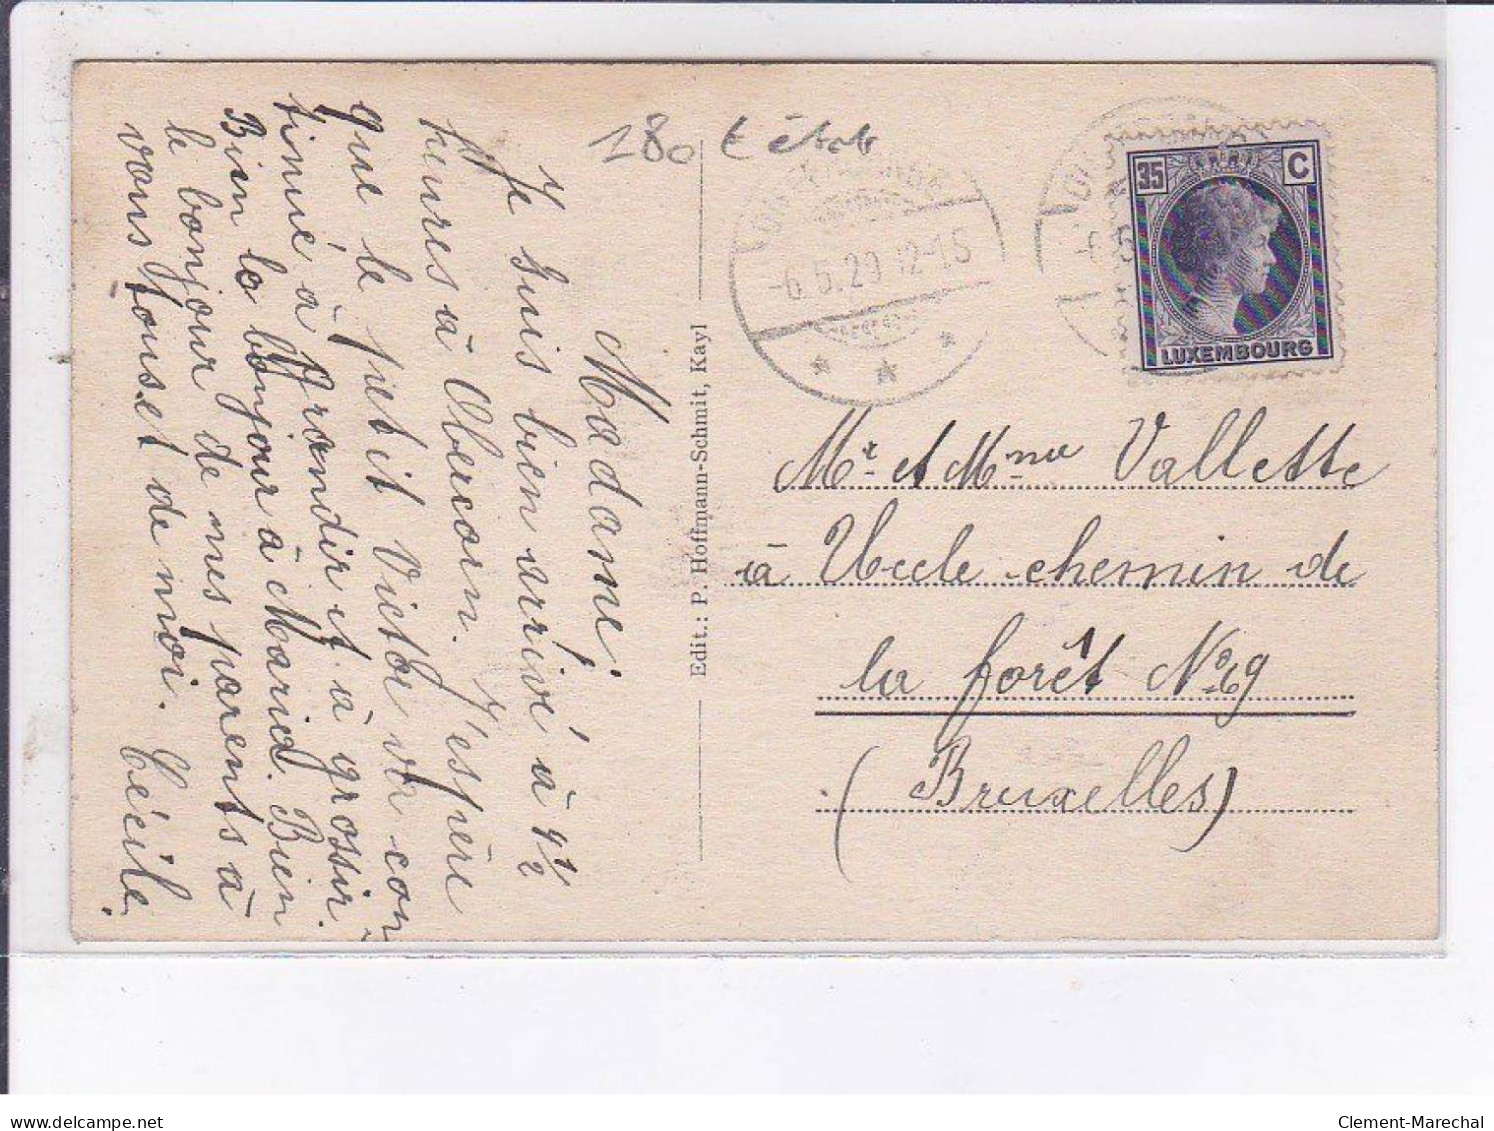 Madame!
Je suis bien arrivé à 4 1/2
heures à Obercorn. J'espère
que le petit Victor va con-
tinué à grandir et à grossir.
Bien le bonjour à Maria. Bien
le bonjour de mes parents à
vous tous et de moi. Cécile.
Edit.: P. Hoffmann-Schmit, Kayl
180 t état
-6.5.29 12-15
35 C
LUXEMBOURG
Mr et Mme Vallette
à Uccle chemin de
la forêt No 29
(Bruxelles)
delcampe.net
Clement-Marechal